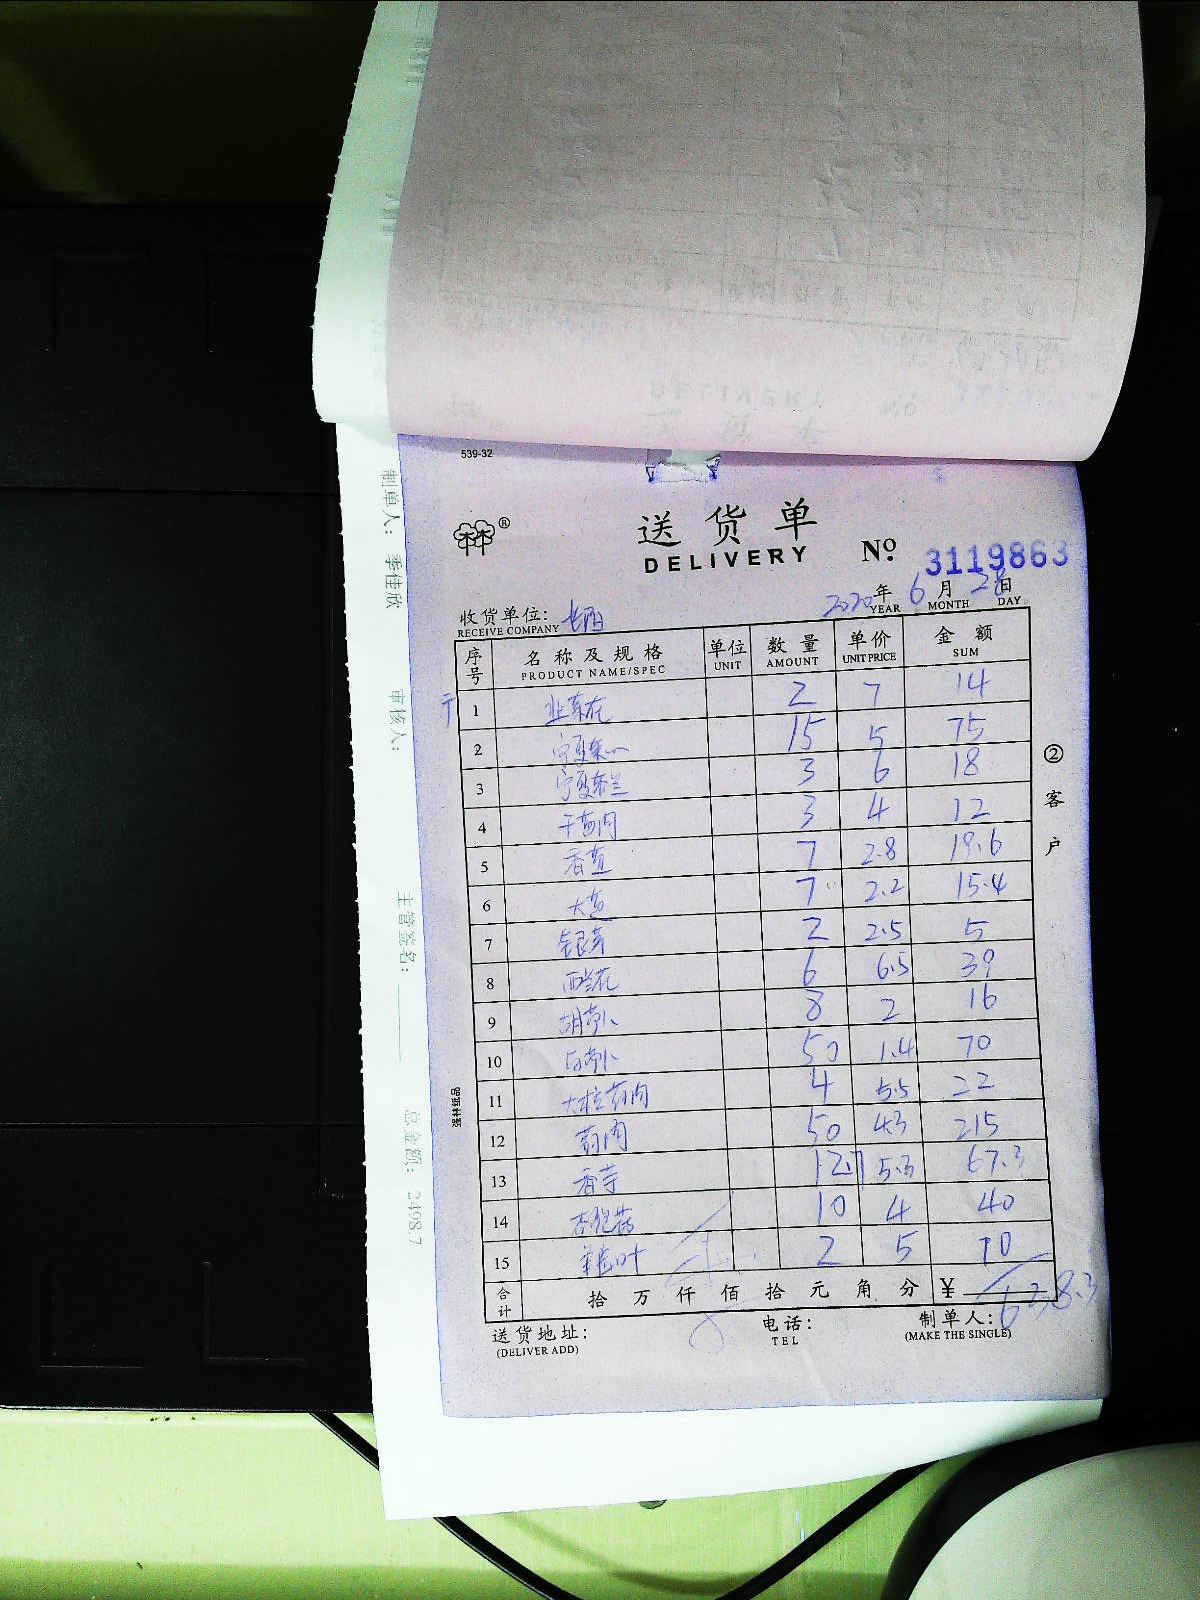 539-32
®
送货单
DELIVERY
No 3119863
2020年 6月 28日
YEAR MONTH DAY
收货单位:
RECEIVE COMPANY
序号 名称及规格 单位 数量 单价 金额
PRODUCT NAME/SPEC UNIT AMOUNT UNIT PRICE SUM
1 2 7 14
2 宁夏菜心 15 5 75
3 宁夏芥兰 3 6 18
4 干葱肉 3 4 12
5 香葱 7 2.8 19.6
6 大葱 7 2.2 15.4
7 银芽 2 2.5 5
8 西兰花 6 6.5 39
9 胡萝卜 8 2 16
10 白萝卜 50 1.4 70
11 大粒蒜肉 4 5.5 22
12 蒜肉 50 4.3 215
13 香芋 12.7 5.3 67.3
14 杏鲍菇 10 4 40
15 2 5 10
合计 拾 万 仟 佰 拾 元 角 分 ¥ 638.3
送货地址:
(DELIVER ADD)
电话:
TEL
制单人:
(MAKE THE SINGLE)
②客户
强林纸品
制单人: 季佳欣
审核人:
主管签名:
总金额: 2498.7